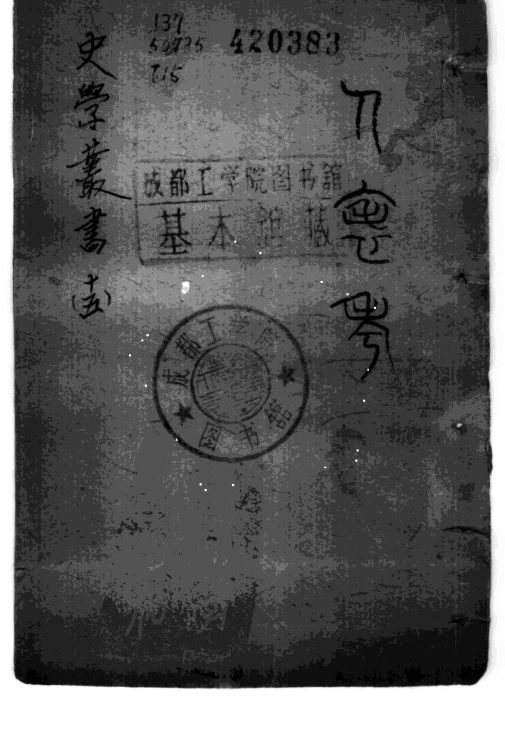 137
50725
T.15
420383
史學叢書(十五)
成都工学院图书館
基本舘藏
成都工学院
图书馆
考